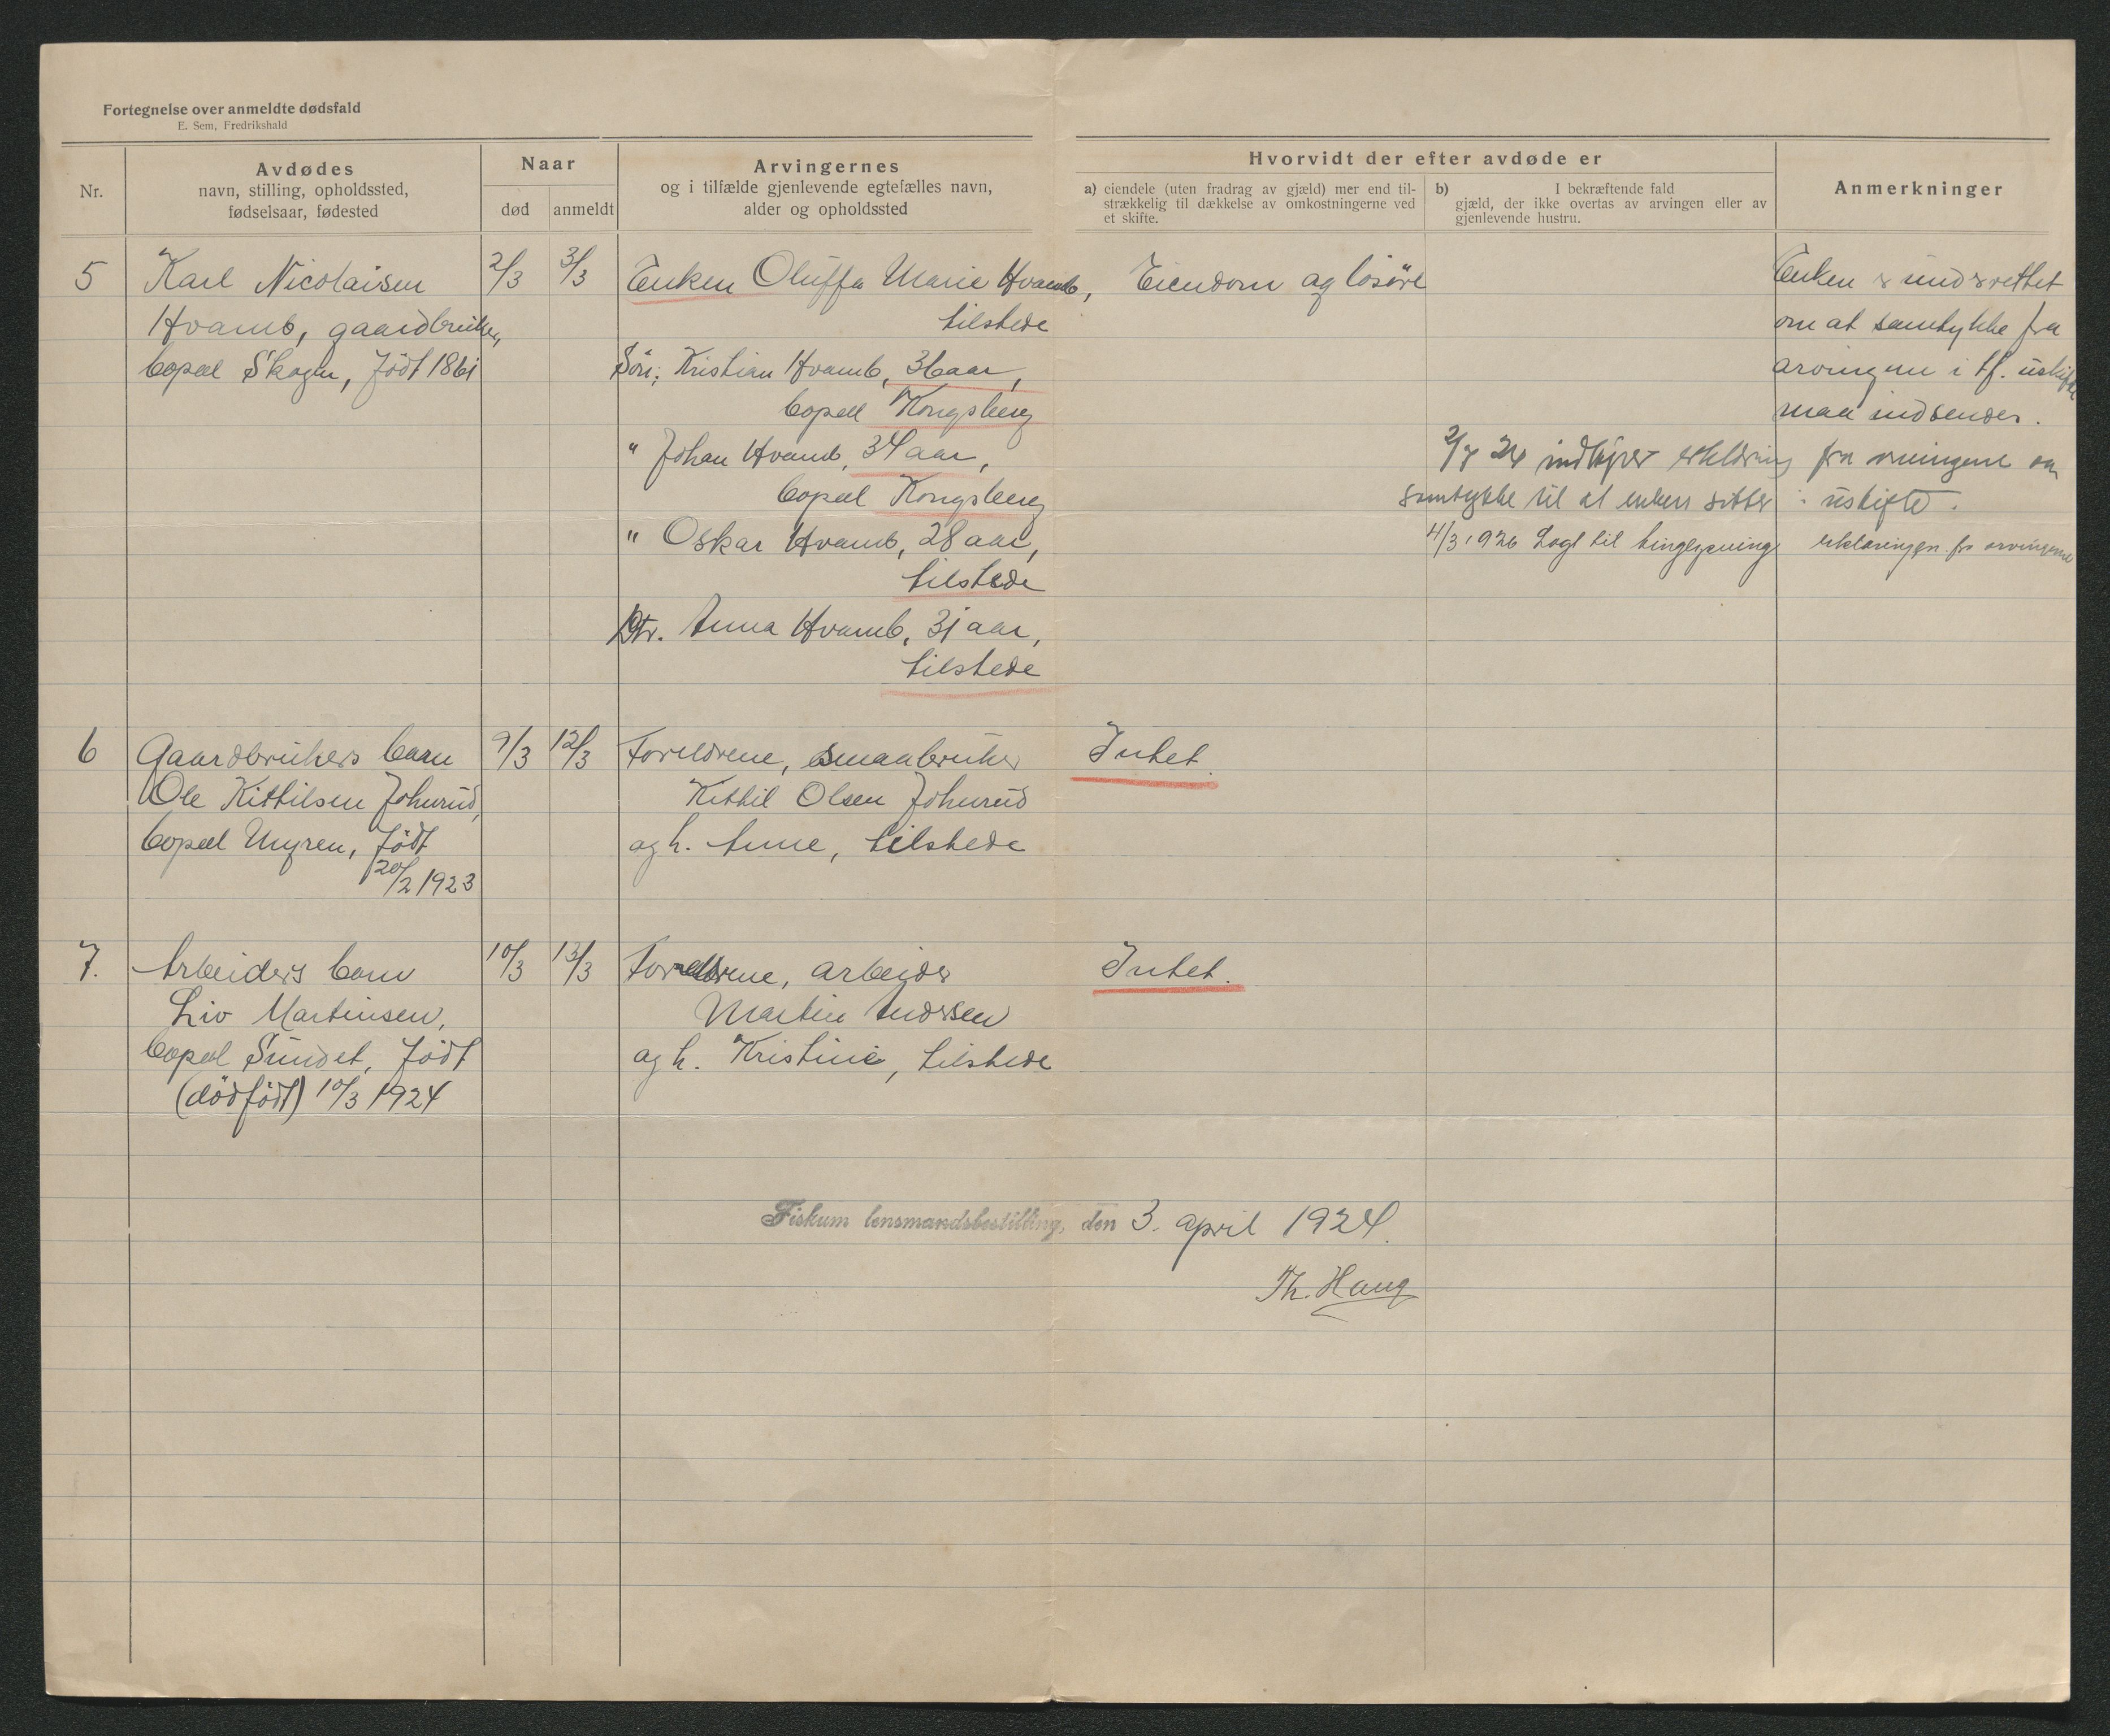 Fortegnelse over anmeldte dødsfald
E. Sem, Fredrikshald
Nr.
Avdødes
navn, stilling, opholdssted,
fødselsaar, fødested
Naar
død
anmeldt
Arvingernes
og i tilfælde gjenlevende egtefælles navn,
alder og opholdssted
Hvorvidt der efter avdøde er
a) eiendele (uten fradrag av gjæld) mer end til-
strækkelig til dækkelse av omkostningerne ved
et skifte.
b) I bekræftende fald
gjæld, der ikke overtas av arvingen eller av
gjenlevende hustru.
Anmerkninger
5
Karl Nicolaisen
Hvamb, gaardbruker,
bopæl Skogen, født 1861
2/3
3/3
Enken Oluffa Marie Hvamb,
tilstede
Søn: Kristian Hvamb, 36 aar,
bopæl Kongsberg
" Johan Hvamb, 34 aar,
bopæl Kongsberg
" Oskar Hvamb, 28 aar,
tilstede
Dtr. Anna Hvamb, 31 aar,
tilstede
Eiendom og løsøre
Enken underrettet
om at samtykke fra
arvingene i tf. uskifte
maa indsendes.
24 erklæring fra arvingene om
samtykke til at enken sitter i uskifte.
4/3 1926 Lagt til tinglysning erklæringen fra arvingerne
6
Gaardbrukers barn
Ole Kittilsen Johnrud,
bopæl Myren, født
20/2 1923
9/3
12/3
Forældrene, smaabruker
Kittil Olsen Johnrud
og h. Anne, tilstede
Intet.
7.
Arbeiders barn
Liv Martinsen,
bopæl Sundet, født
(dødfødt) 10/3 1924
10/3
13/3
Forældrene, arbeider
Martin Andersen
og h. Kristine, tilstede
Intet.
Fiskum lensmandsbestilling, den 3. april 1924.
Th. Haug